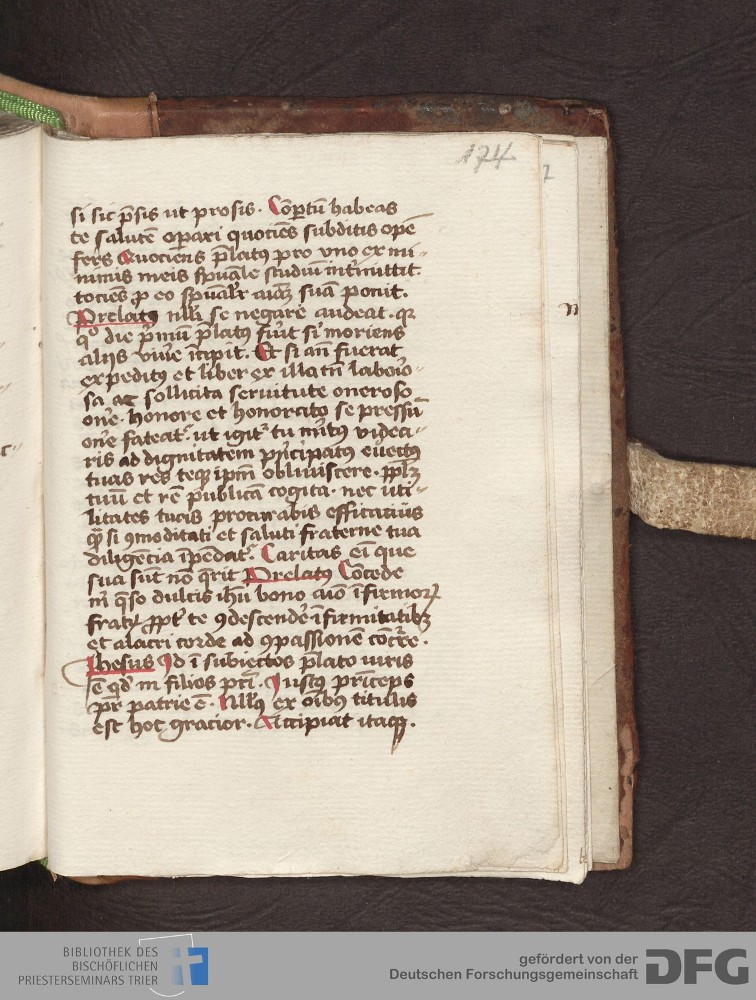 174
si sic p̄sis ut prosis. Cōpertū habeas
te salutē oparari quociēs subditis opē
fers Quociens p̄latꝰ pro uno ex mi-
nimis meis spūale studiū int̄mittit
tociēs ꝓ eo spūalr̄ aīaꝫ suā ponit.
Prelatꝰ nllī se negare audeat. qꝛ
qͦ die p̄mū p̄latꝰ fūit si moriens
aliis viūe īcipit. Et si an̄ fuerat
expeditꝰ et liber ex illa tn̄ labōio-
sa ac sollicita seruitute oneroso
on̄e. honore et honorcito se pressū
on̄e fateatᷣ. ut igitᷣ tu m̄itꝰ videa-
ris ad dignitatem p̄ncipatꝰ euectꝰ
tuas res teqꝫ ip̄m obliuiscere. ppl̄ꝫ
tuū et rē publicā cogita. nec uti-
litates tuas procurabis efficatiūs
qᷓꝫ si ꝯmoditati et saluti fraterne tua
diligēcia īpēdatᷣ. Caritas ei que
sua sūt nō q̄rit Prelatꝰ Cōcede
m̄ qso dulcis ihū bono aīo īfirmoꝝ
fratꝝ ꝓpt̄ te ꝯdescendē īfirmitatibꝫ
et alacri corde ad ꝯpassionē cōcr̄re.
Jhesus Id ī subiectos p̄lato iuris
ē qd̄ in filios pr̄i. Justꝰ p̄nceps
pr̄ patrie ē. Nllꝰ ex oībꝰ titulis
est hoc gracior. Accipiat itaqꝫ.
BIBLIOTHEK DES
BISCHÖFLICHEN
PRIESTERSEMINARS TRIER
gefördert von der
Deutschen Forschungsgemeinschaft
DFG